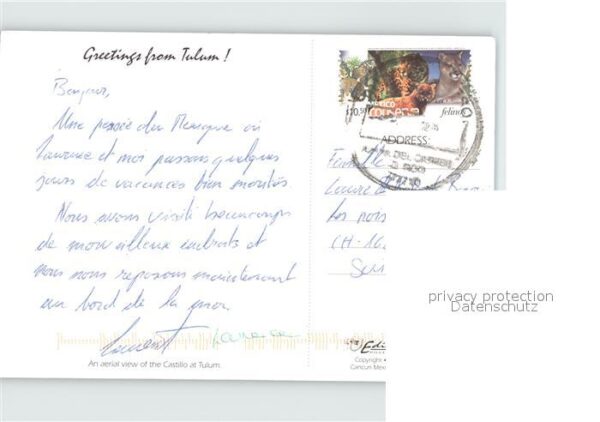 Greetings from Tulum !
Bonjour,
Une pensée du Mexique où
Laurence et moi passons quelques
jours de vacances bien mérités.
Nous avons visité beaucoup
de merveilleux endroits et
nous nous reposons maintenant
au bord de la mer.
Laurent Laurence
An aerial view of the Castillo at Tulum.
MEXICO
$10.50
felino
ADDRESS:
PLAYA DEL CARMEN
77710
Famille
Laure
Les
CH-16
Sui
privacy protection
Datenschutz
Edi
Copyright
Cancun Mex